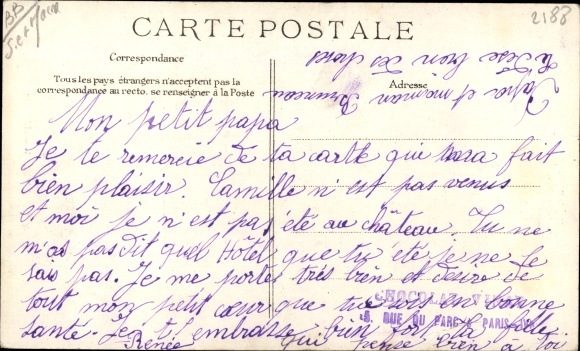 BB
S.et Marne
2188
CARTE POSTALE
Correspondance
Tous les pays étrangers n'acceptent pas la
correspondance au recto. se renseigner à la Poste
Adresse
Papa et maman
Mon petit papa
Je te remercie de ta carte qui m'a fait
bien plaisir. Camille n'est pas venus
et moi je n'est pas été au château. Tu ne
m'as pas dit quel Hôtel que tu été je ne le
sais pas. Je me porte très bien et désire de
tout mon petit cœur que tu sois en bonne
santé. Je t'embrasse bien fort ta fille
Renée qui pense bien à toi
RUE DU PARC PARIS